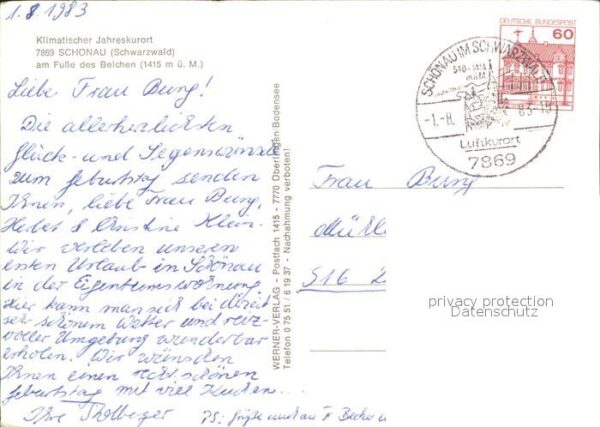 1.8.1983
Klimatischer Jahreskurort
7869 SCHÖNAU (Schwarzwald)
am Fuße des Belchen (1415 m ü. M.)
Liebe Frau Burg!
Die allerherzlichsten
Glück- und Segenswünsche
zum Geburtstag senden
Ihnen, liebe Frau Burg,
Herbert & Christine Klein.
Wir verleben unseren
ersten Urlaub in Schönau
in der Eigentumswohnung.
Hier kann man sich bei derzeit
sehr schönem Wetter und reiz-
voller Umgebung wunderbar
erholen. Wir wünschen
Ihnen einen recht schönen
Geburtstag mit viel Kuchen...
Ihre
PS: Grüße auch an F
WERNER-VERLAG - Postfach 1415 - 7770 Überlingen-Bodensee
Telefon 0 75 51 / 6 19 37 - Nachahmung verboten!
DEUTSCHE BUNDESPOST
60
SCHÖNAU IM SCHWARZWALD
540-1414
-1.-8.
83-19
Luftkurort
7869
Frau Burg
516
privacy protection
Datenschutz